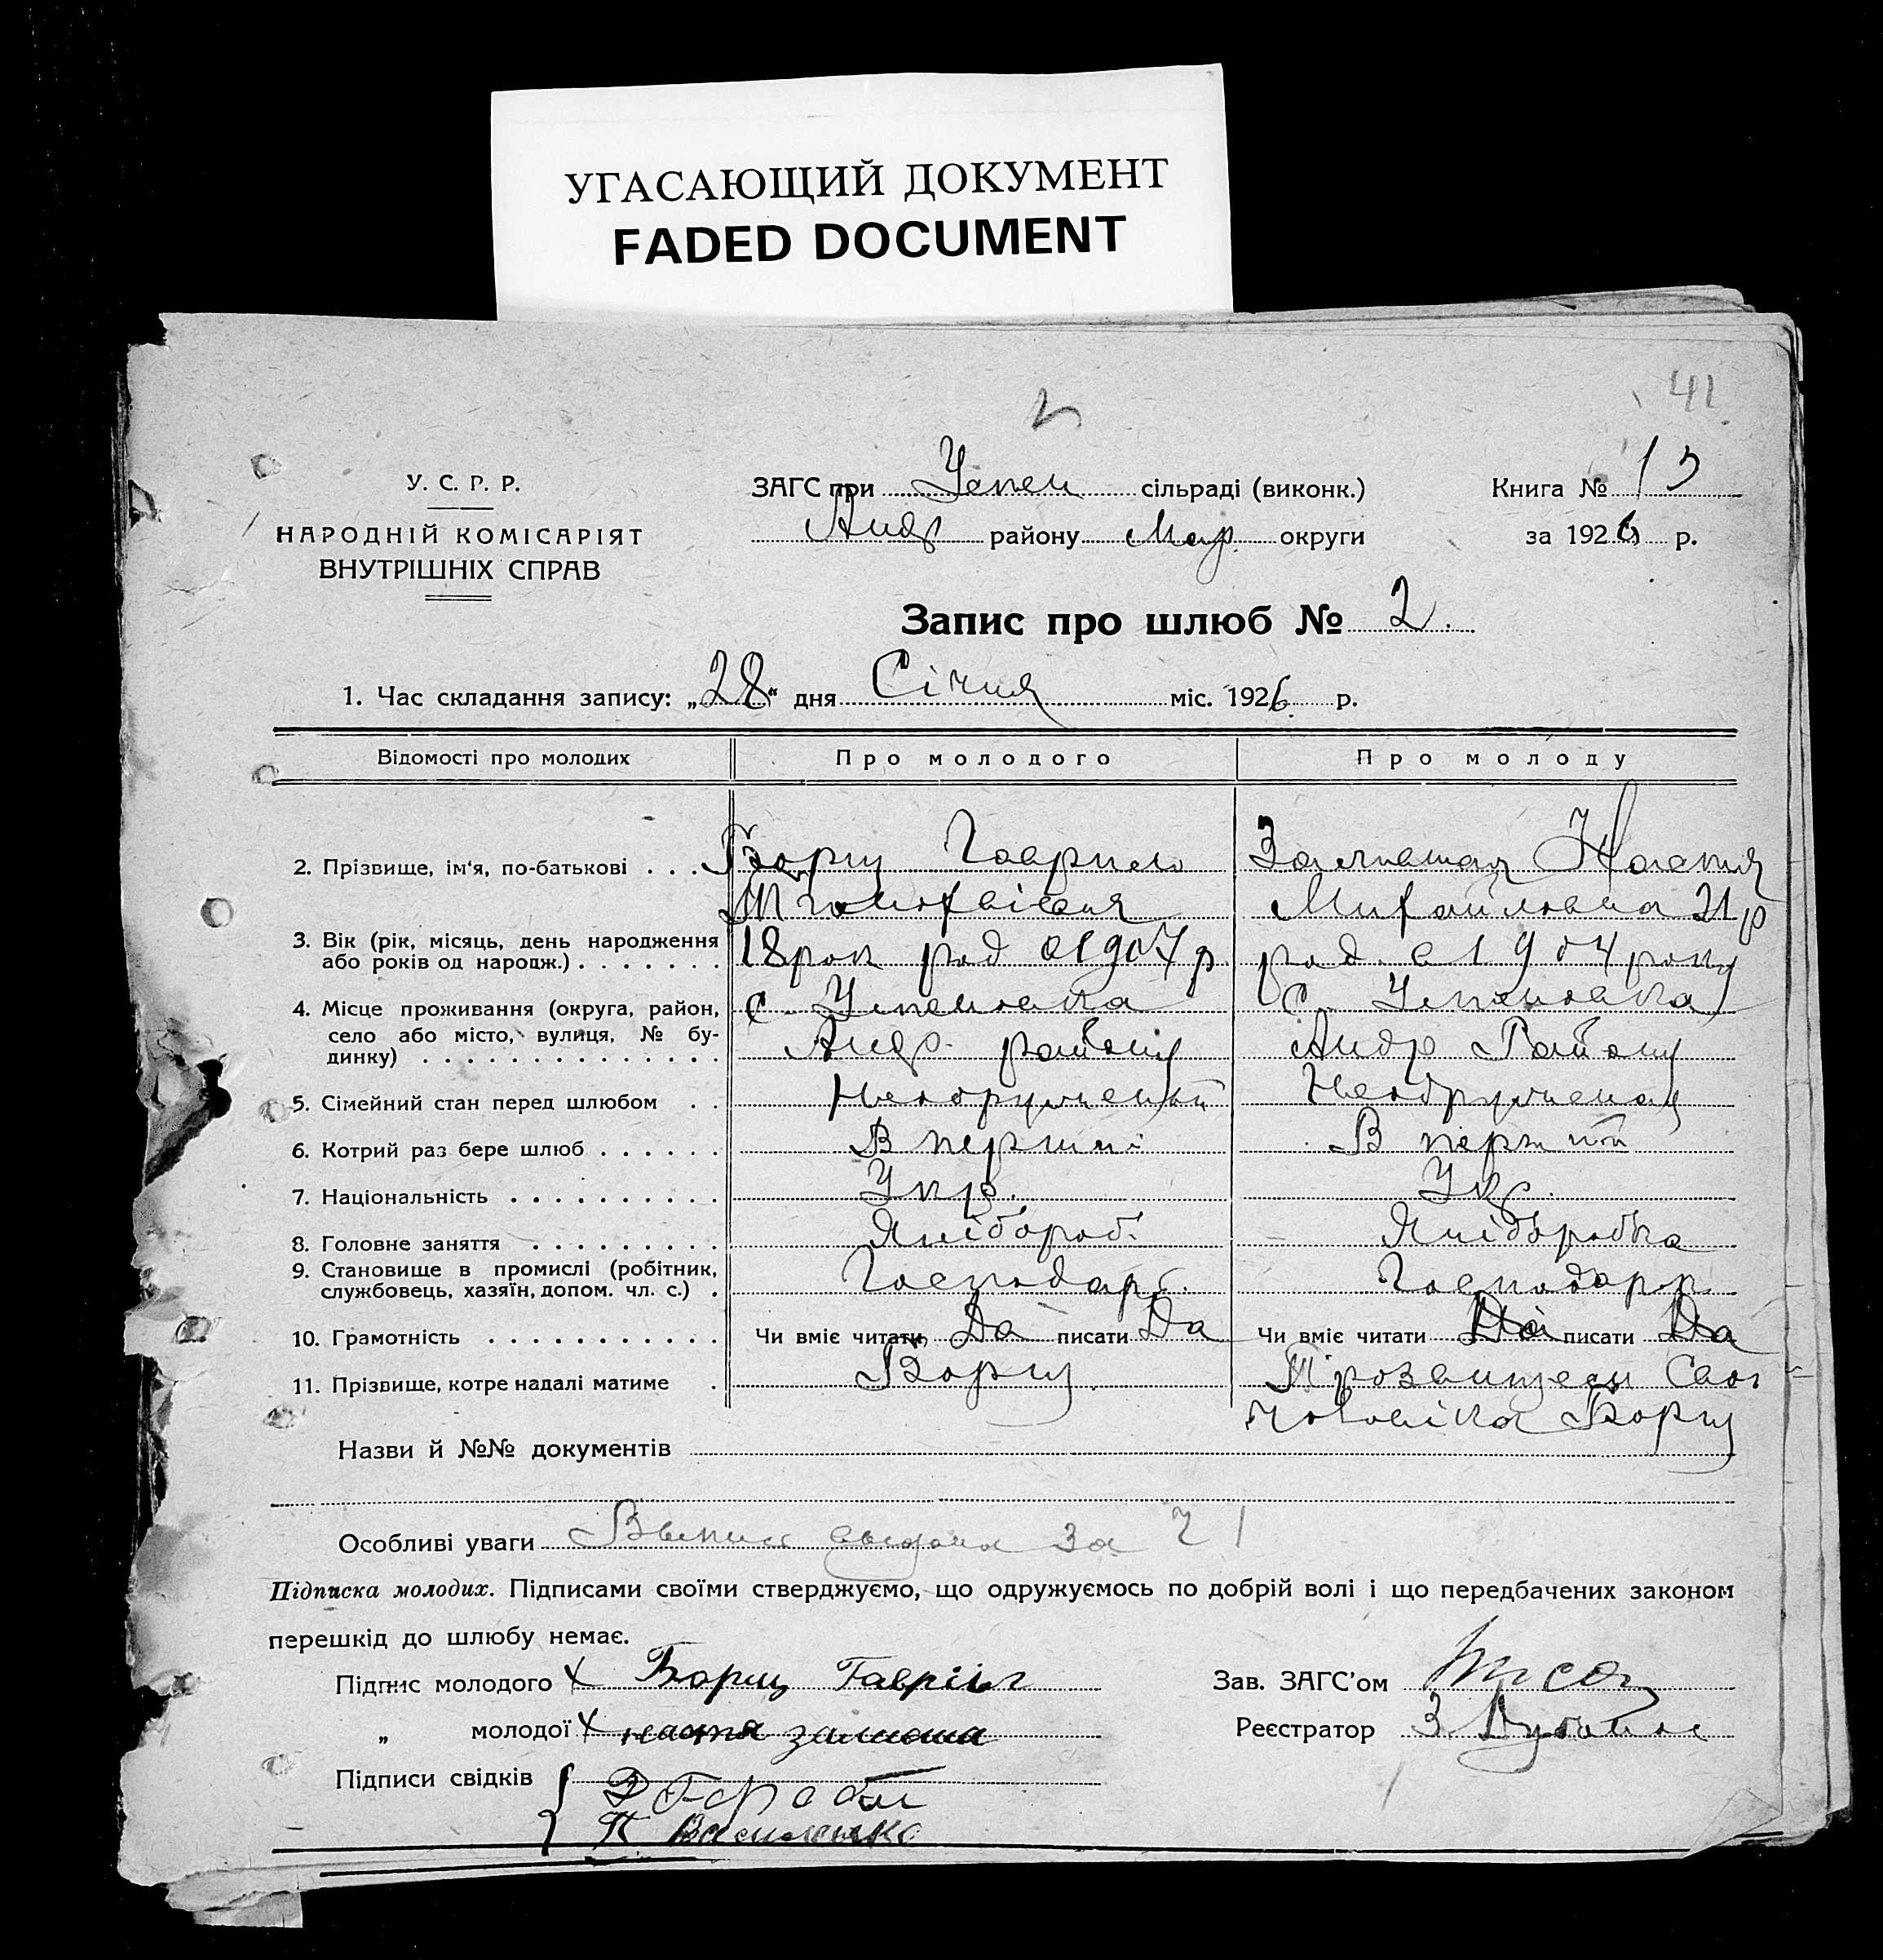 УГАСАЮЩИЙ ДОКУМЕНТ
FADED DOCUMENT
41
2
У. С. Р. Р.
НАРОДНІЙ КОМІСАРІЯТ
ВНУТРІШНІХ СПРАВ
ЗАГС при Успен сільраді (виконк.)
Андр району Мар. округи
Книга № 13
за 1926 р.
Запис про шлюб № 2.
1. Час складання запису: „28“ дня Січня міс. 1926 р.
Відомості про молодих
Про молодого
Про молоду
2. Прізвище, ім‘я, по-батькові . . .
Борщ Гаврило
Настя
Михайловна 21 р
3. Вік (рік, місяць, день народження
або років од народж.) . . . . . . .
18 рок род 1907 р
род. 1904 року
4. Місце проживання (округа, район,
село або місто, вулиця, № бу-
динку) . . . . . . . . . . . . . .
с. Успеновка
Андр. району
с. Успеновка
Андр Району
5. Сімейний стан перед шлюбом . .
6. Котрий раз бере шлюб . . . . . .
В перший
В перший
7. Національність . . . . . . . . . .
Укр.
Укр.
8. Головне заняття . . . . . . . . .
Хлібороб.
Хліборобка
9. Становище в промислі (робітник,
службовець, хазяїн, допом. чл. с.) .
10. Грамотність . . . . . . . . . . .
Чи вміє читати Да писати Да
Чи вміє читати Да писати Да
11. Прізвище, котре надалі матиме .
Борщ
чоловіка Борщ
Назви й №№ документів
Особливі уваги Выпись выдана за Ч 1
Підписка молодих. Підписами своїми стверджуємо, що одружуємось по добрій волі і що передбачених законом
перешкід до шлюбу немає.
Підпис молодого х Борщ Гавріїл
„ молодої х настя
Підписи свідків
П Василенко
Зав. ЗАГС’ом
Реєстратор З.